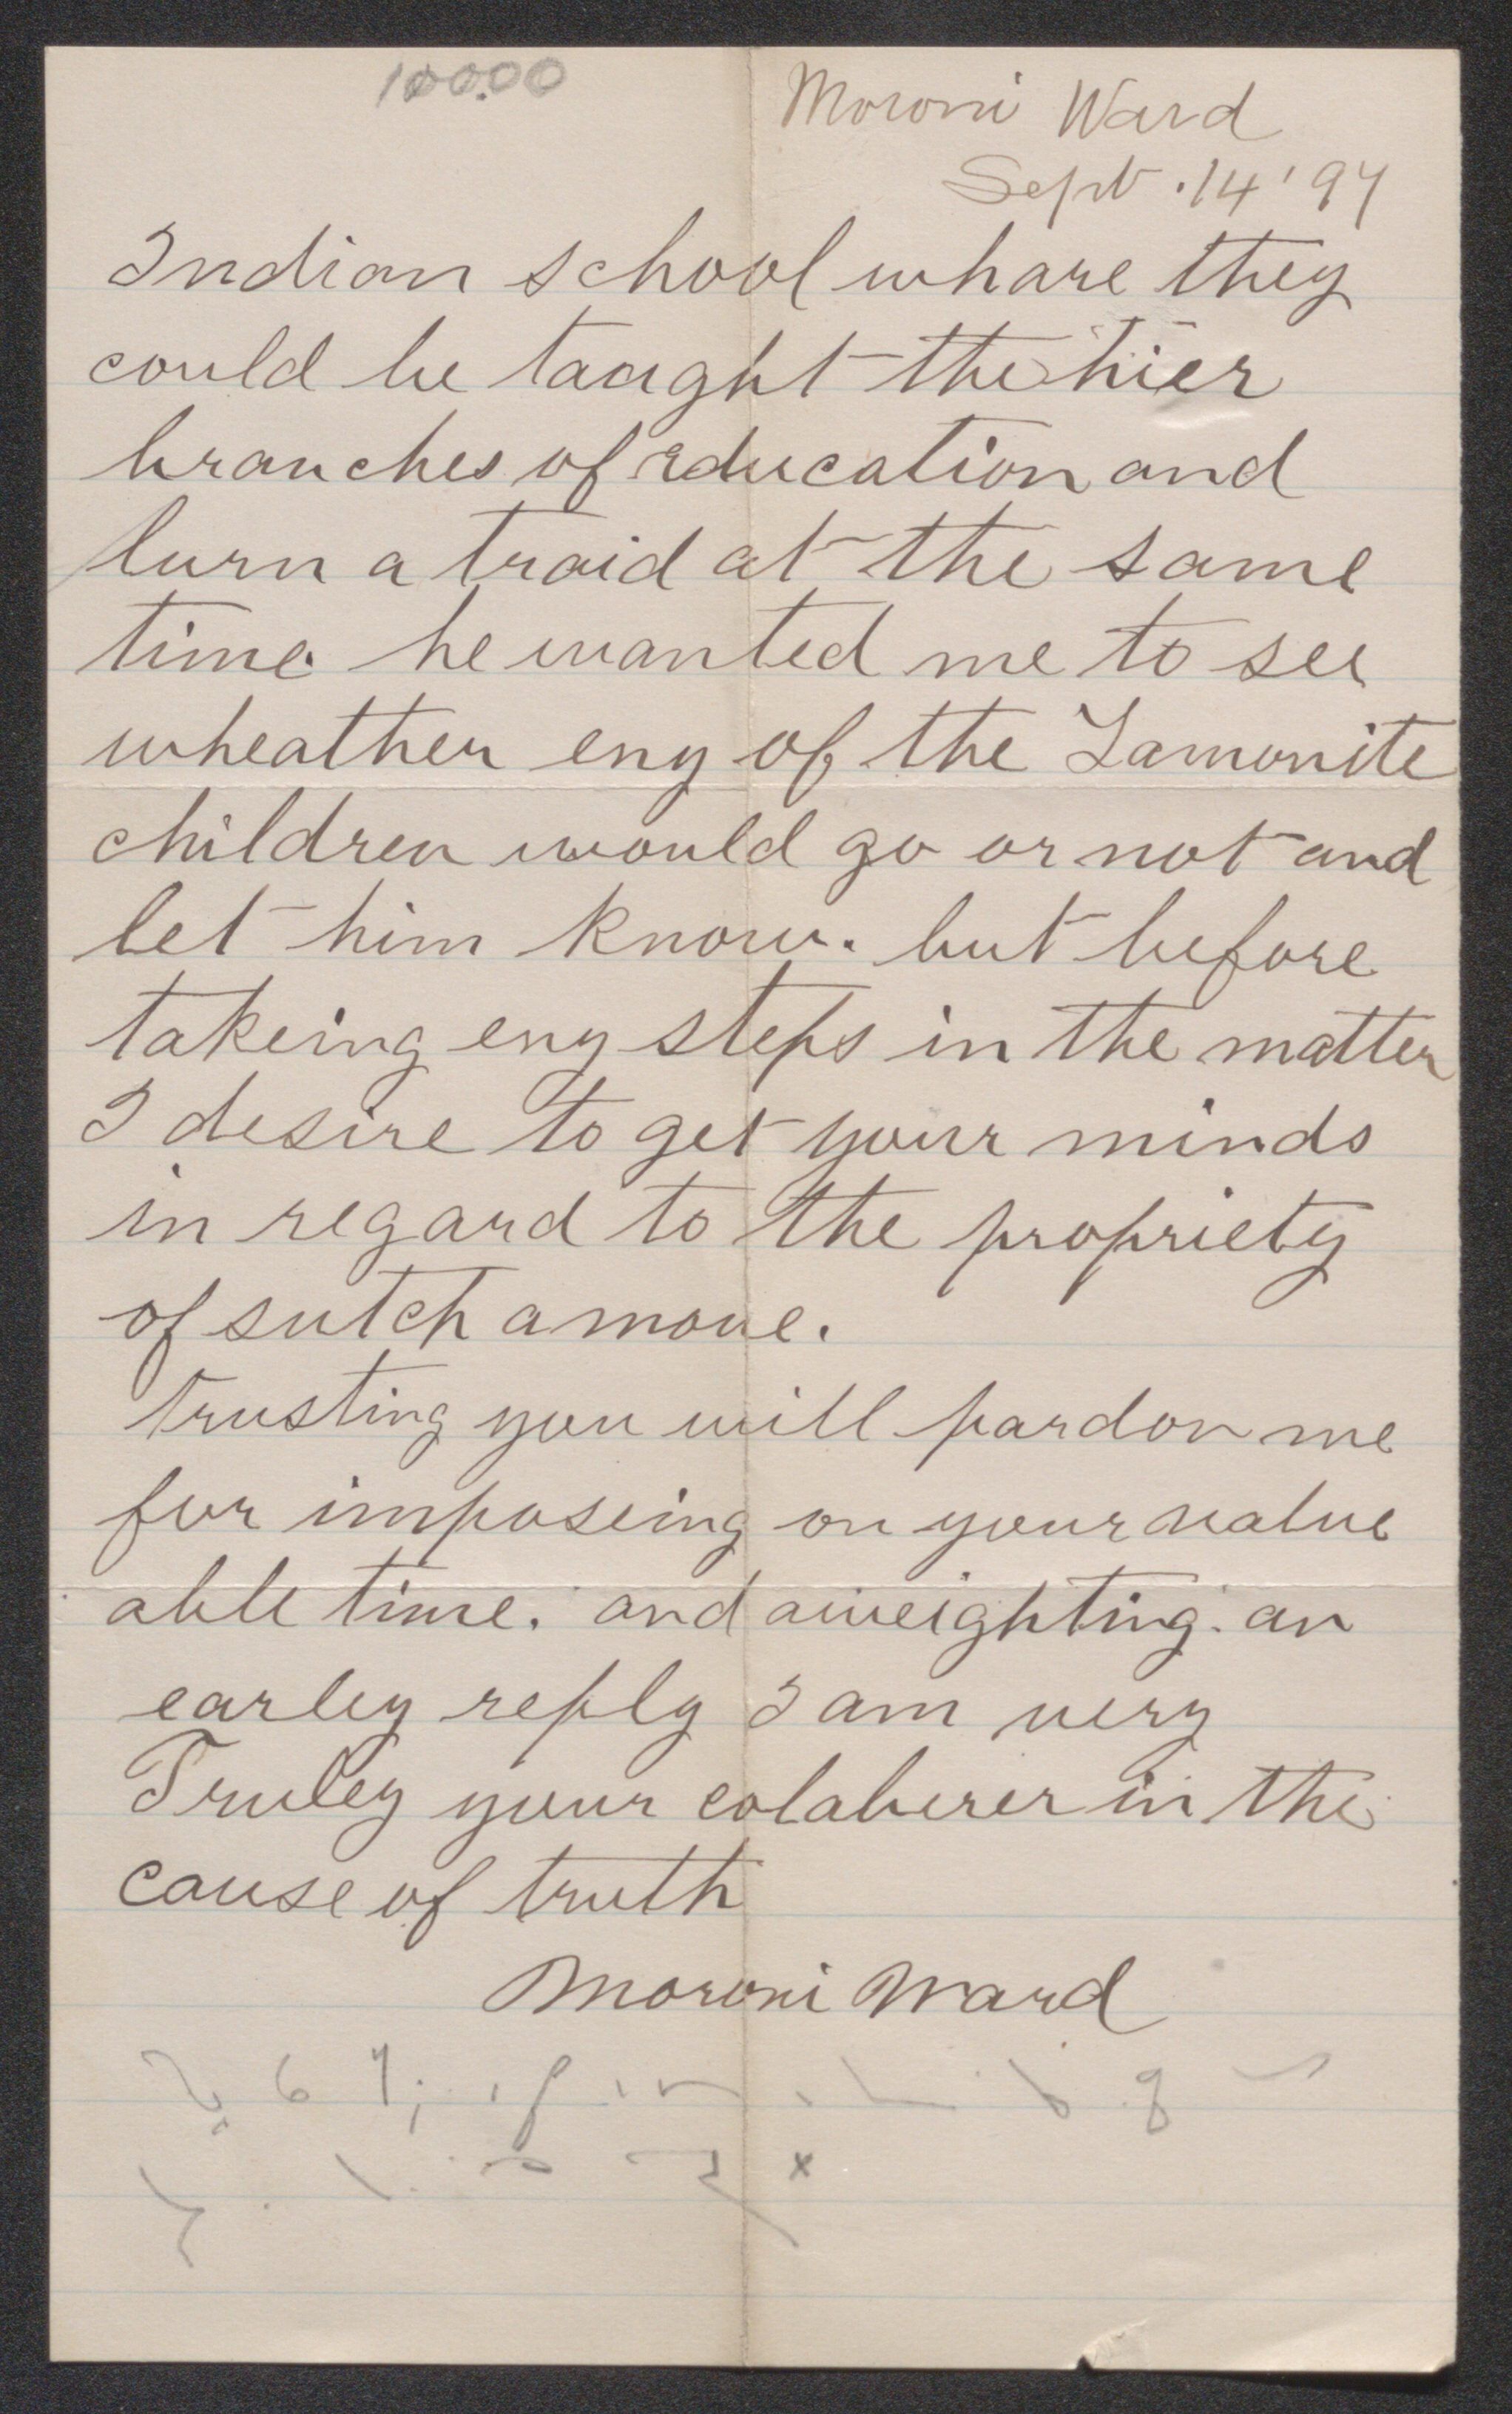 100.00
Moroni Ward
Sept. 14 '97
Indian school whare they
could be taught the hier
branches of education and
lurn a traid at the same
time. he wanted me to see
wheather eny of the Lamonite
children would go or not and
let him know. but before
takeing eny steps in the matter
I desire to get your minds
in regard to the propriety
of sutch a move.
Trusting you will pardon me
for imposeing on your value
able time. and aweighting. an
earley reply I am very
Truley your colaberer in the
cause of truth
Moroni Ward